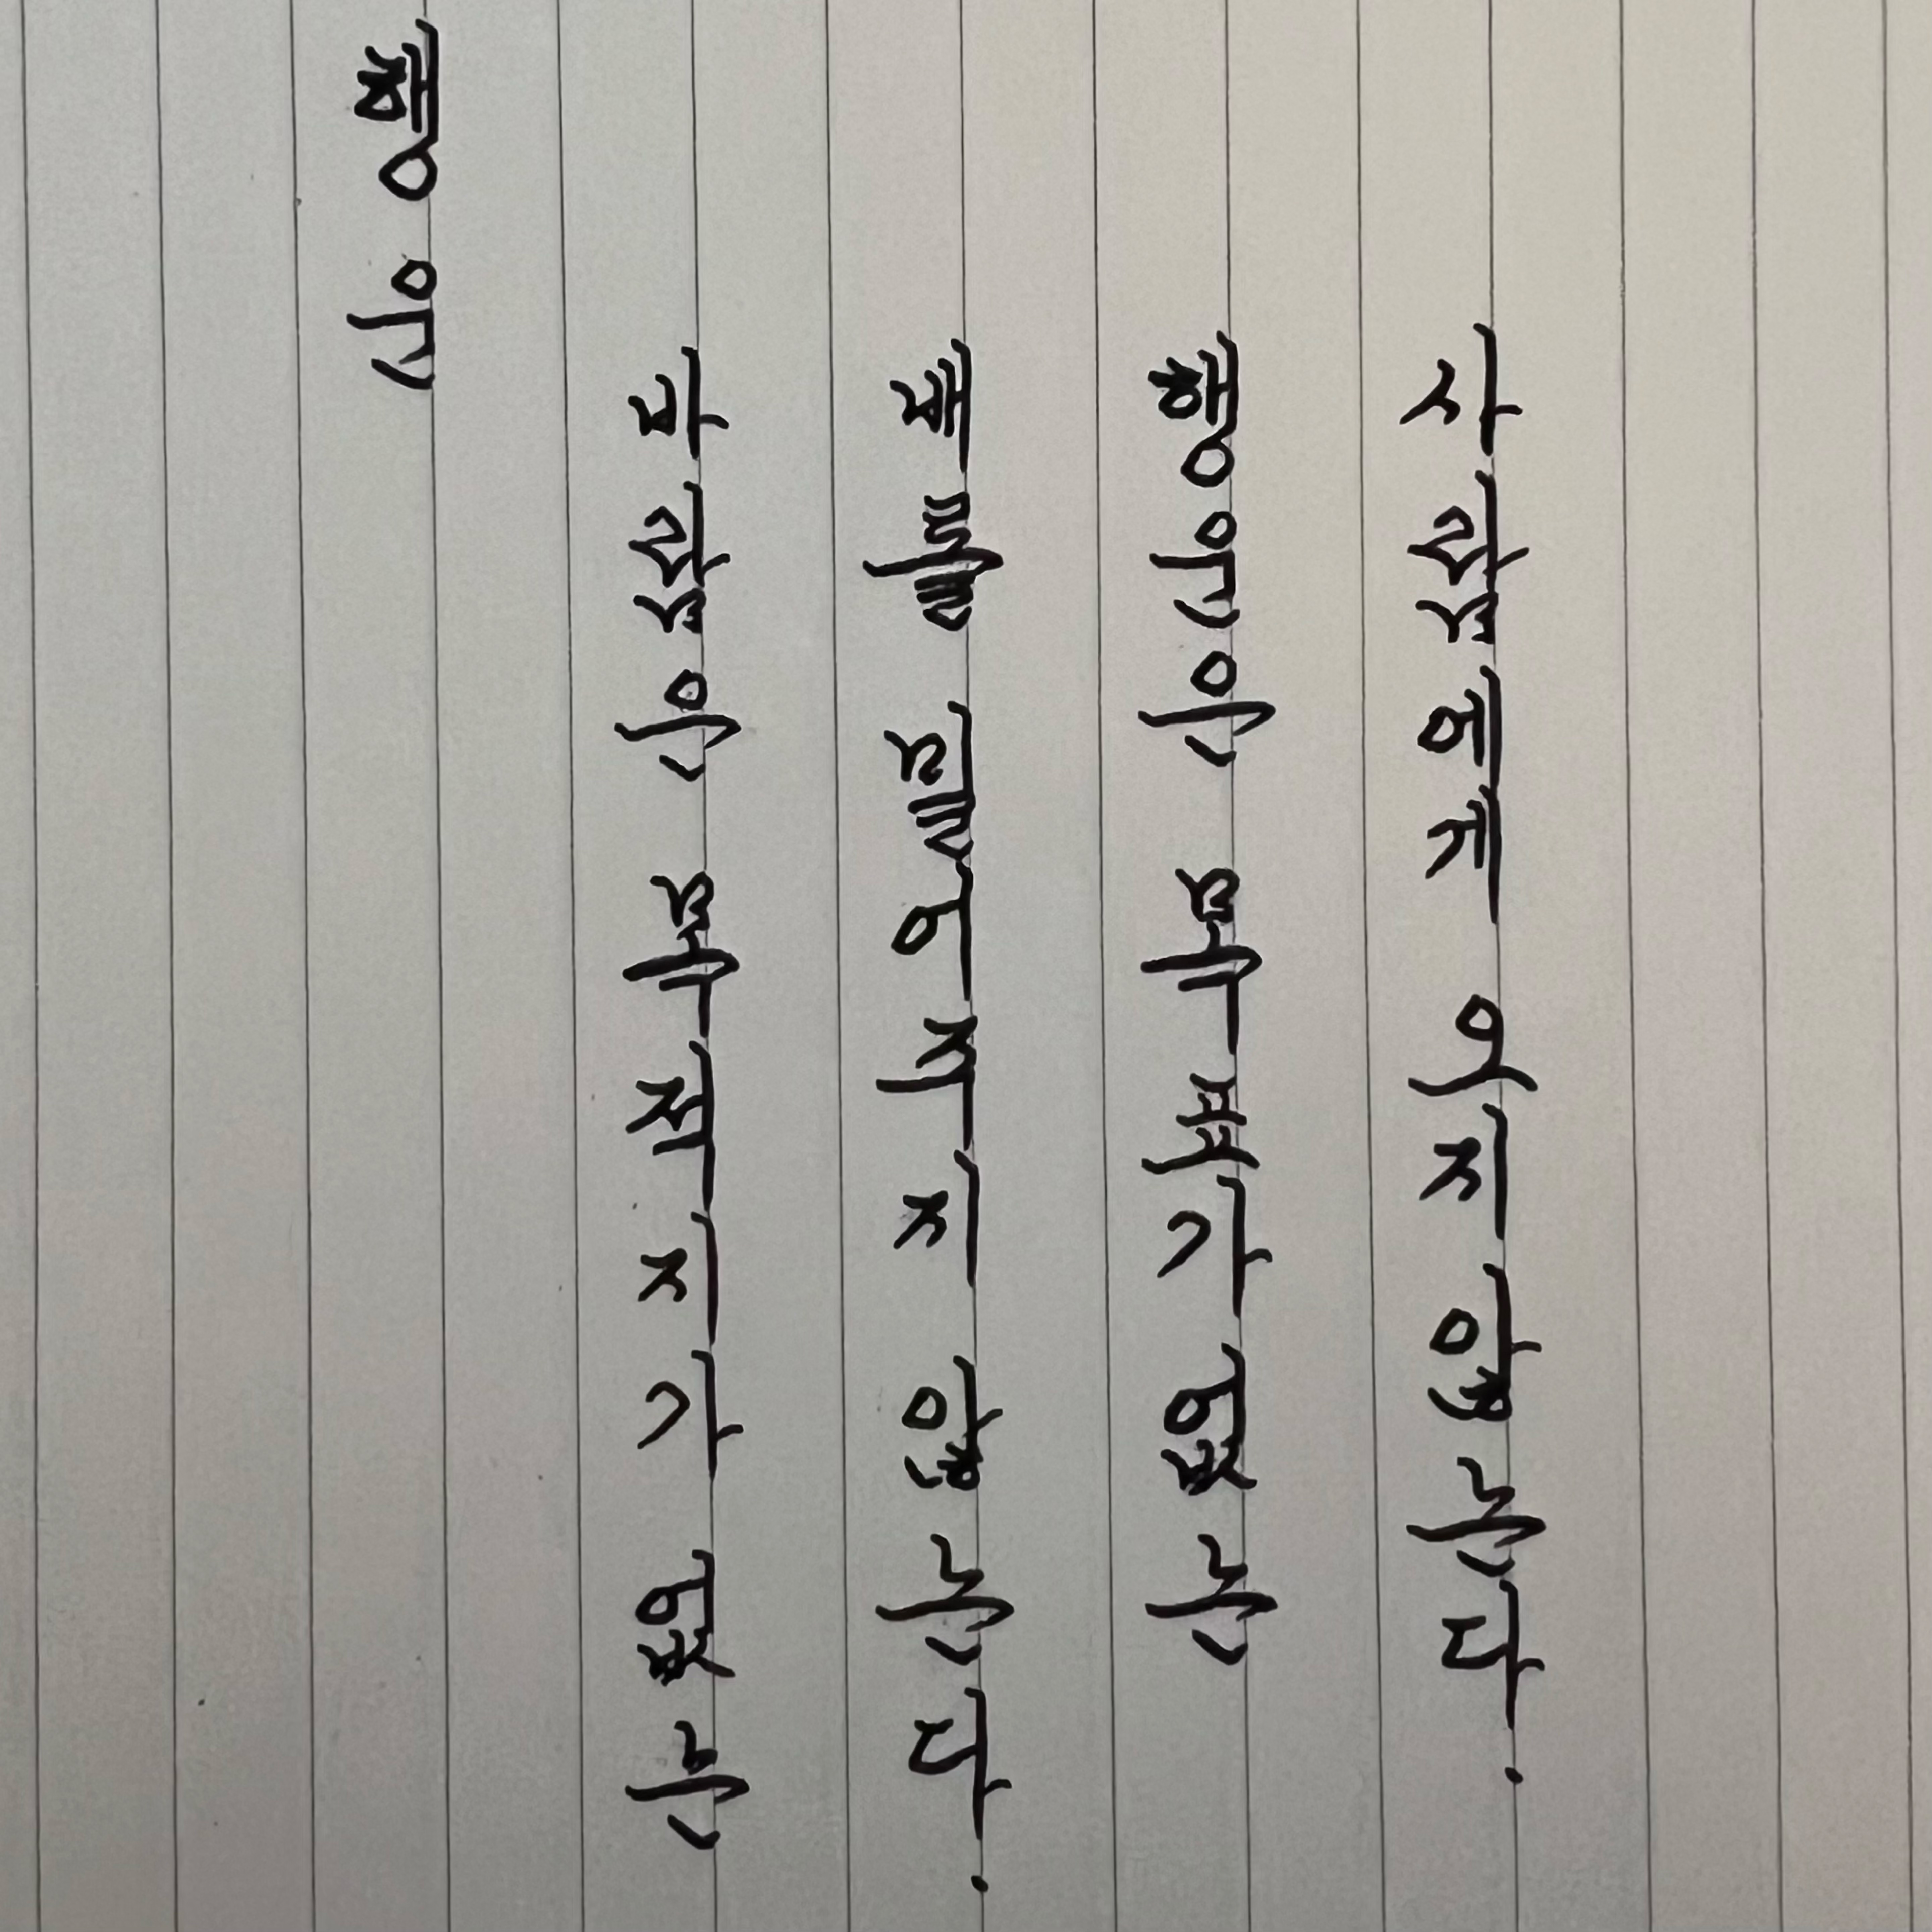 행운
바람은 목적지가 없는
배를 밀어주지 않는다.
행운은 목표가 없는
사람에게 오지않는다.